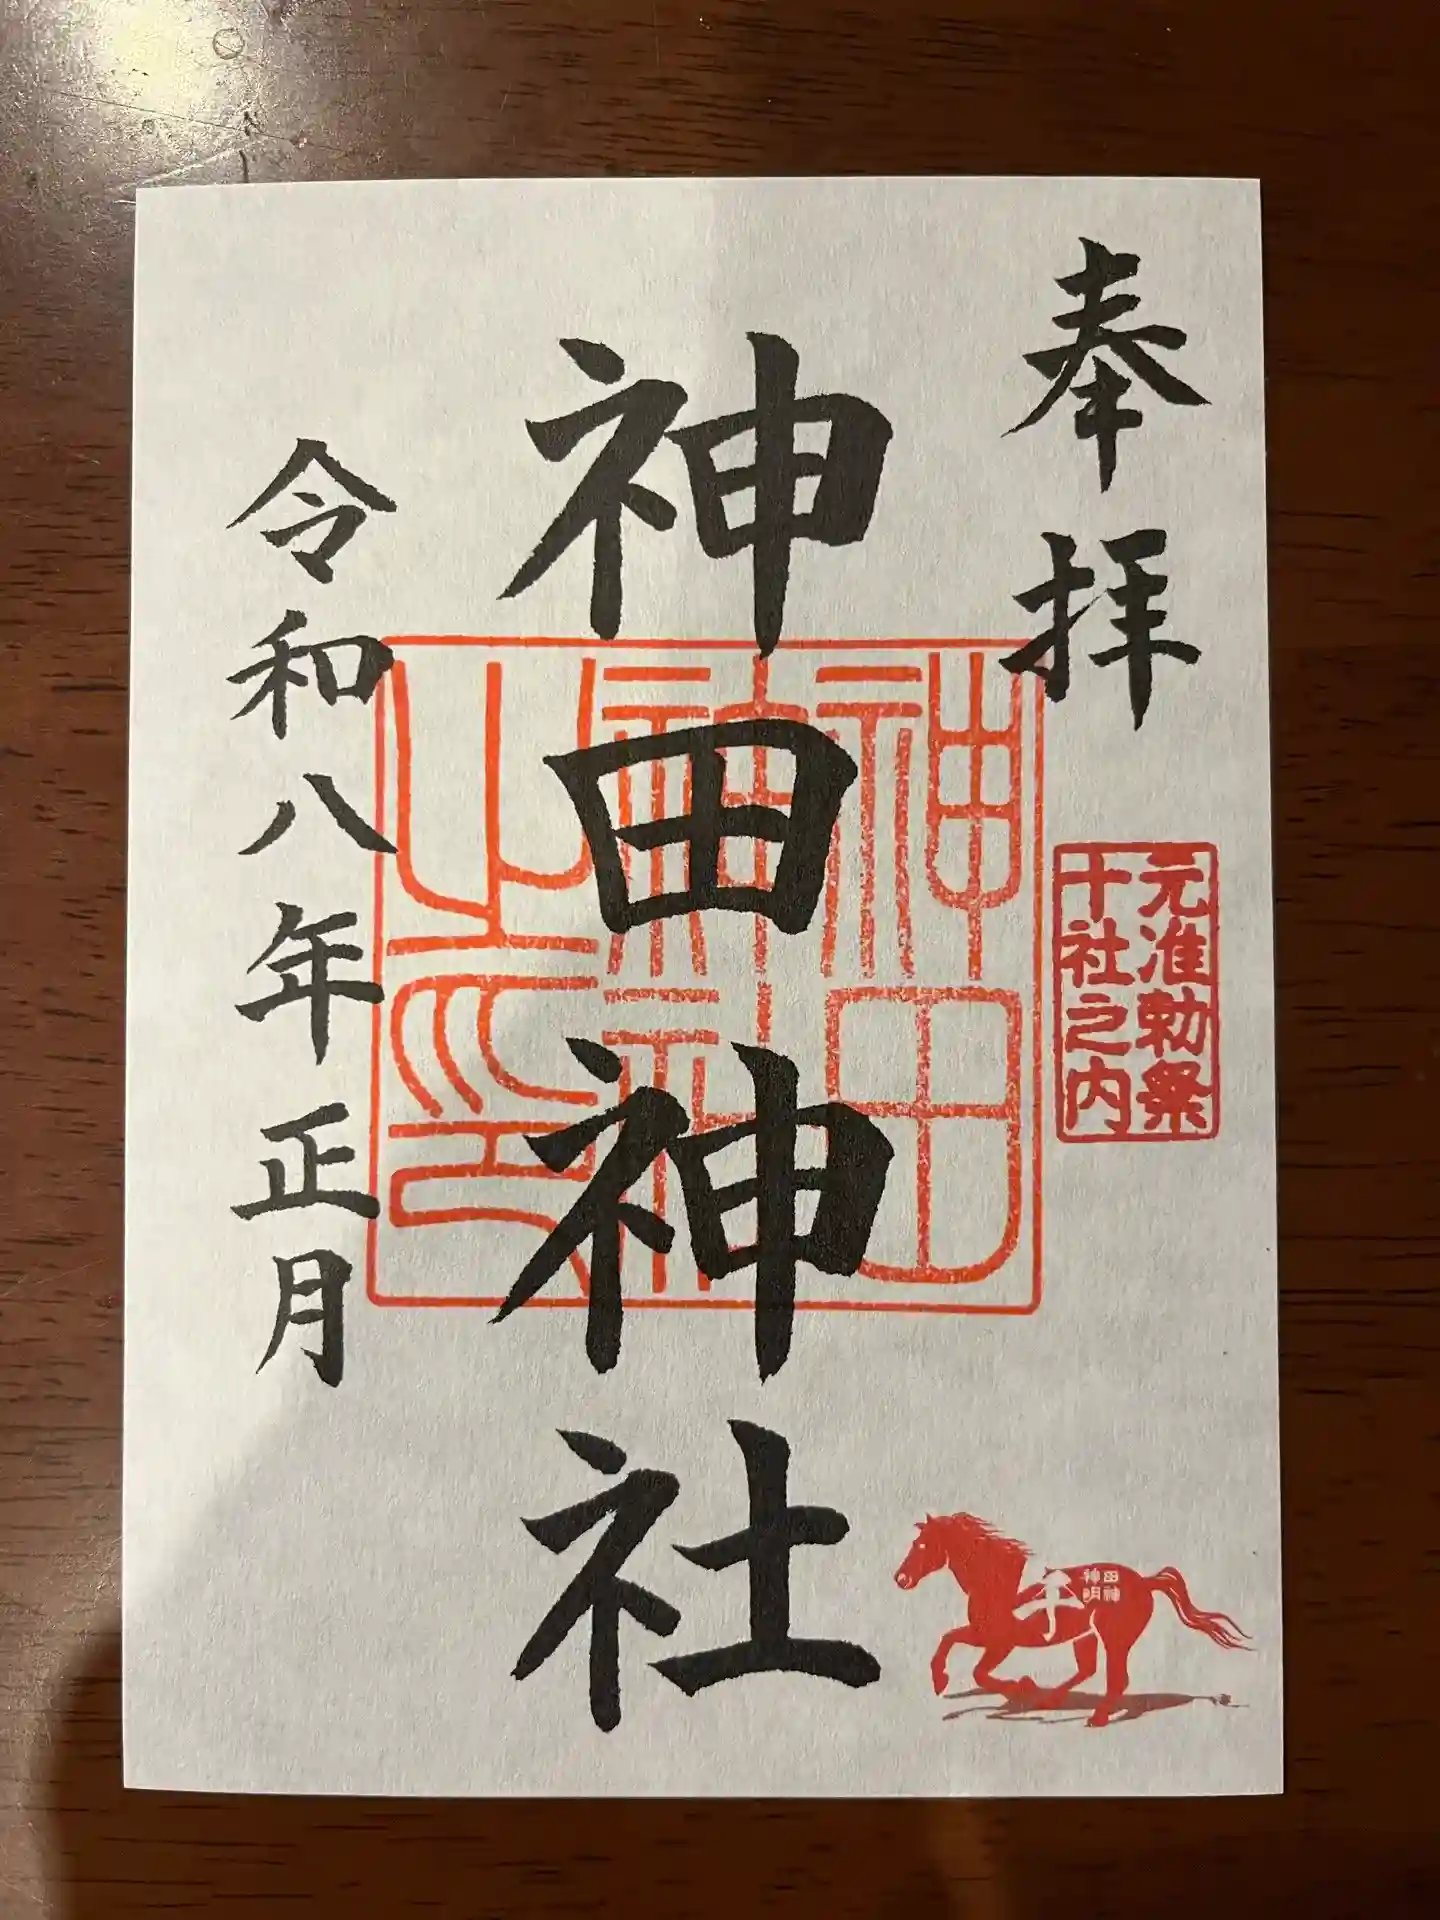 奉拝
元准勅祭
十社之内
神田神社
神田
神社
之印
令和八年正月
田神
神明